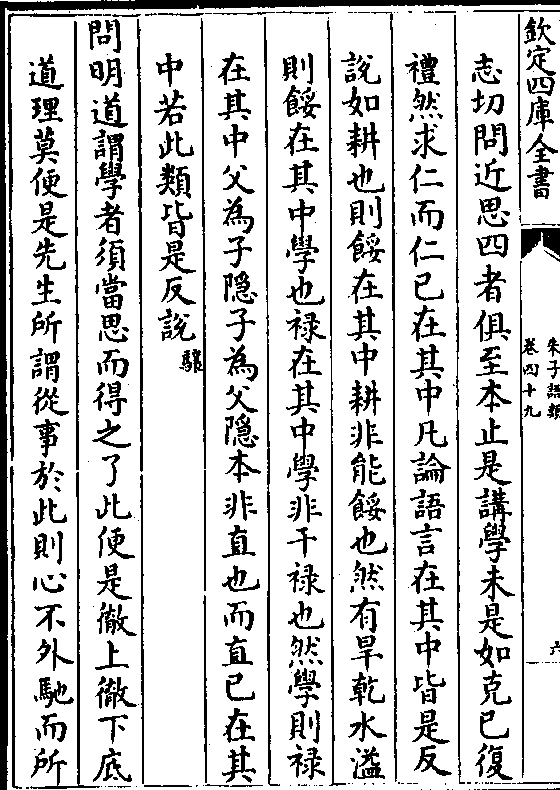 欽定四庫全書
朱子語類
卷四十九
六
志切問近思四者俱至本止是講學未是如克己復
禮然求仁而仁已在其中凡論語言在其中皆是反
說如耕也則餒在其中耕非能餒也然有旱乾水溢
則餒在其中學也祿在其中學非干祿也然學則祿
在其中父為子隠子為父隠本非直也而直已在其
中若此類皆是反說驤
問明道謂學者須當思而得之了此便是徹上徹下底
道理莫便是先生所謂從事於此則心不外馳而所